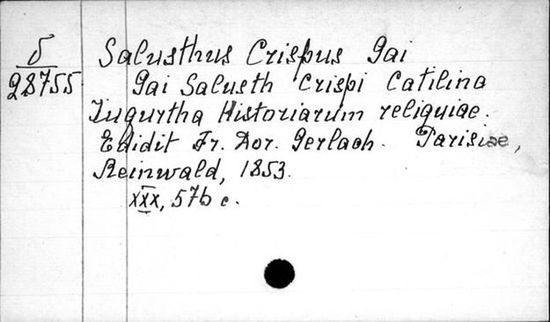 б
28755
Salusthus Crispus Gai
Gai Salusth Crispi Catilina
Iugurtha Historiarum reliquiae.
Edidit Fr. Dor. Gerlach. Parisiae,
Reinwald, 1853.
XXX, 576 c.